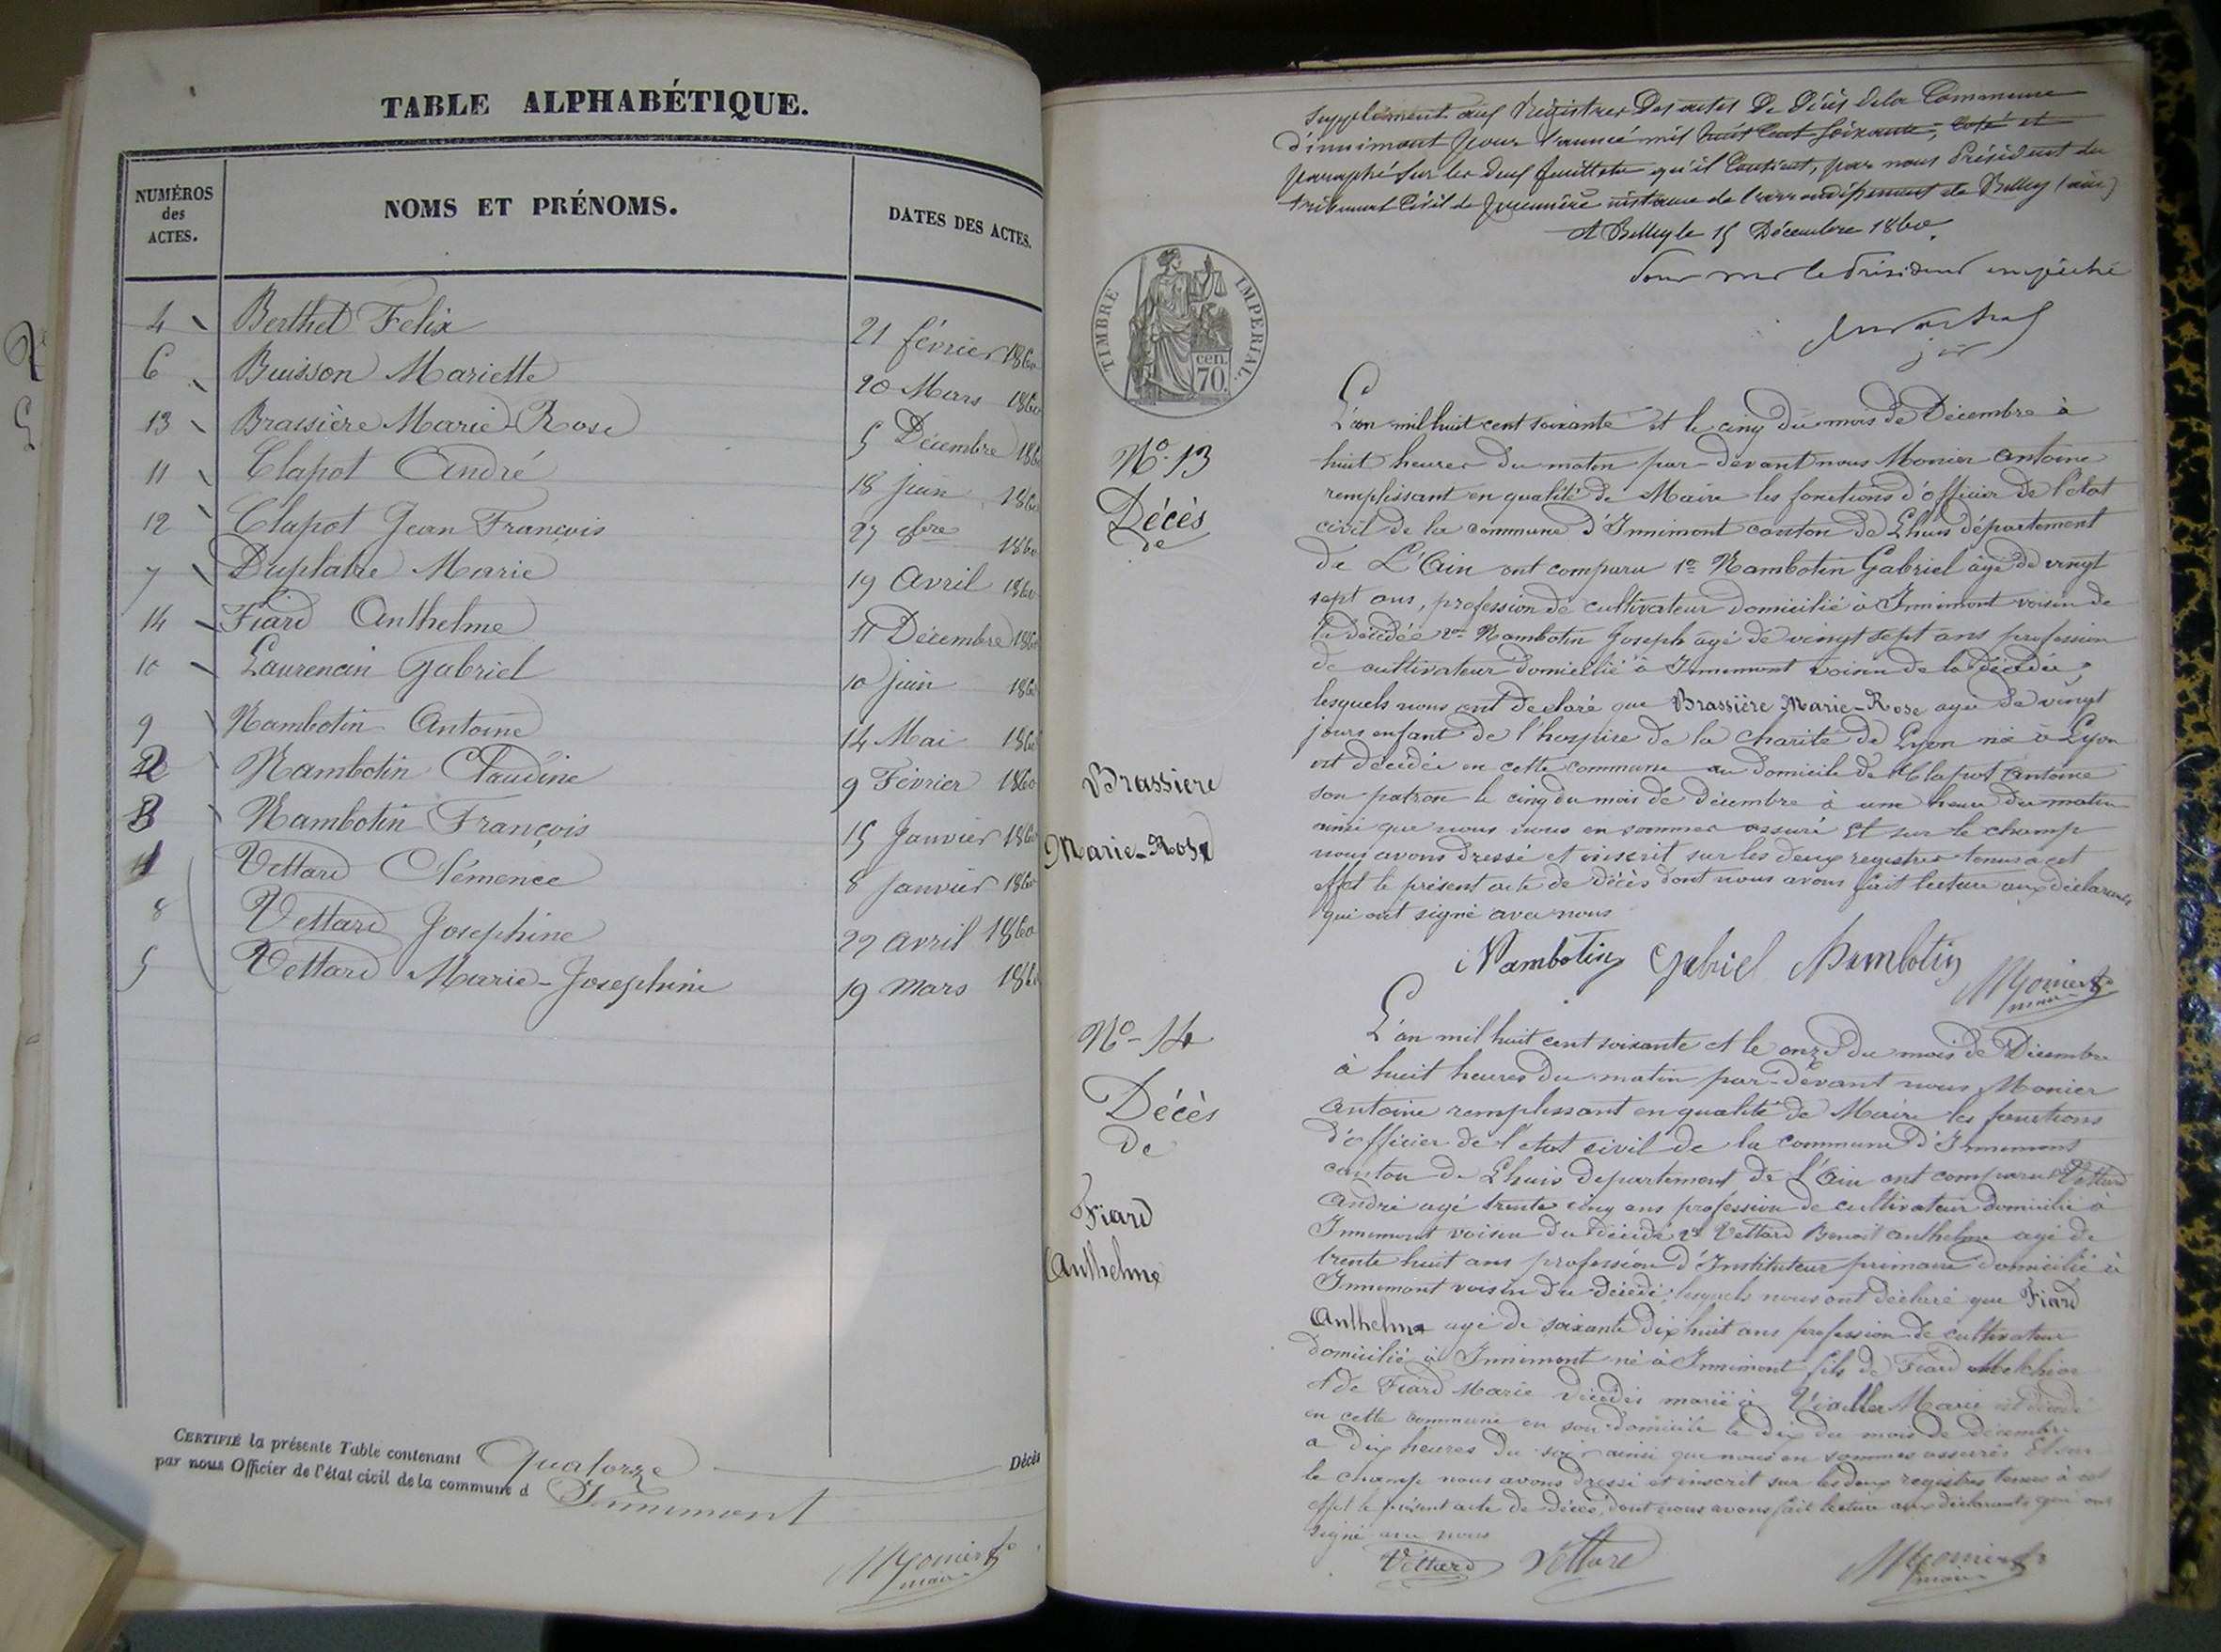 TABLE ALPHABÉTIQUE.
NUMÉROS des ACTES.
NOMS ET PRÉNOMS.
DATES DES ACTES.
4 Berthet Felix 21 février 1860
6 Buisson Mariette 20 Mars 1860
13 Brassière Marie-Rose 5 Décembre 1860
11 Clapot André 18 juin 1860
12 Clapot Jean François 27 8bre 1860
7 Duplatre Marie 19 Avril 1860
14 Fiard Anthelme 11 Décembre 1860
10 Laurencin Gabriel 10 juin 1860
9 Nambotin Antoine 14 Mai 1860
2 Nambotin Claudine 9 Février 1860
3 Nambotin François 15 Janvier 1860
1 Vettard Clémence 8 Janvier 1860
8 Vettard Josephine 22 avril 1860
5 Vettard Marie-Josephine 19 mars 1860
CERTIFIÉ la présente Table contenant Quatorze Décès
par nous Officier de l'état civil de la commune d Innimont
Monier
maire
Supplément aux Régistres Des actes De Décès dela Commune
d'innimont pour l'année mil huit Cent soixante, coté et
paraphé sur les deux feuillets qu'il Contient, par nous Président du
tribunal Civil de première instance de l'arrondissement de Belley (ain)
A Belley le 15 Décembre 1860.
Pour mr le Président empêché
TIMBRE IMPÉRIAL.
cen.
70.
No 13
Décès
de
Brassiere
Marie-Rose
L'an mil huit cent soixante et le cinq du mois de Décembre à
huit heures du matin par-devant nous Monier Antoine
remplissant en qualité de Maire les fonctions d'officier de l'état
civil de la commune d'Innimont canton de Lhuis département
de L'Ain ont comparu 1o Nambotin Gabriel âgé de vingt
sept ans, profession de cultivateur domicilié à Innimont voisin de
la décédée 2o Nambotin Joseph âgé de vingt sept ans profession
de cultivateur domicilié à Innimont voisin de la décédée,
lesquels nous ont declaré que Brassière Marie-Rose agée de vingt
jours enfant de l'hospice de la charité de Lyon né à Lyon
est décédée en cette commune au domicile de Clapot Antoine
son patron le cinq du mois de décembre à une heure du matin
ainsi que nous nous en sommes assuré Et sur le champ
nous avons dressé et inscrit sur les deux registres tenus a cet
effet le présent acte de décès dont nous avons fait lecture aux déclarants
qui ont signé avec nous
Nambotin Gabriel Nambotin
Monier
maire
No - 14
Décès
De
Fiard
Anthelme
L'an mil huit cent soixante et le onze du mois de Décembre
à huit heures du matin par-devant nous Monier
Antoine remplissant en qualité de Maire les fonctions
d'officier de l'etat civil de la commune d'Innimont
canton de Lhuis departement de l'Ain ont comparu 1o Vettard
André agé trente cinq ans profession de cultivateur domicilié à
Innimont voisin du décédé 2o Vettard Benoit anthelme agé de
trente huit ans profession d'Instituteur primaire domicilié à
Innimont voisin du décédé, lesquels nous ont déclaré que Fiard
Anthelme agé de soixante dix huit ans profession de cultivateur
domicilié à Innimont né à Innimont fils de Fiard Melchior
et de Fiard Marie décédés marié à Marie est décédé
en cette commune en son domicile le dix du mois de décembre
a dix heures du soir ainsi que nous en sommes assurés Et sur
le champ nous avons dressé et inscrit sur les deux registres tenus à cet
effet le présent acte de décès, dont nous avons fait lecture aux déclarants qui ont
signé avec nous
Vettard Vettard
Monier
maire